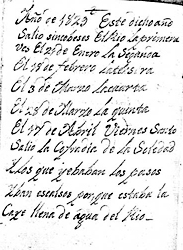 Año de 1823 Este dicho año
Salio sinco beses El Rio la primera
ves El 21 de Enero La Segunda
El 18 de febrero
El 3 de Marzo la cuarta
El 28 de Marzo la quinta
El 17 de Abril Viernes Santo
Salio la Cofradia de la Soledad
Y los que yebaban los pasos
Yban escalsos porque estaba la
Caye llena de agua del Rio